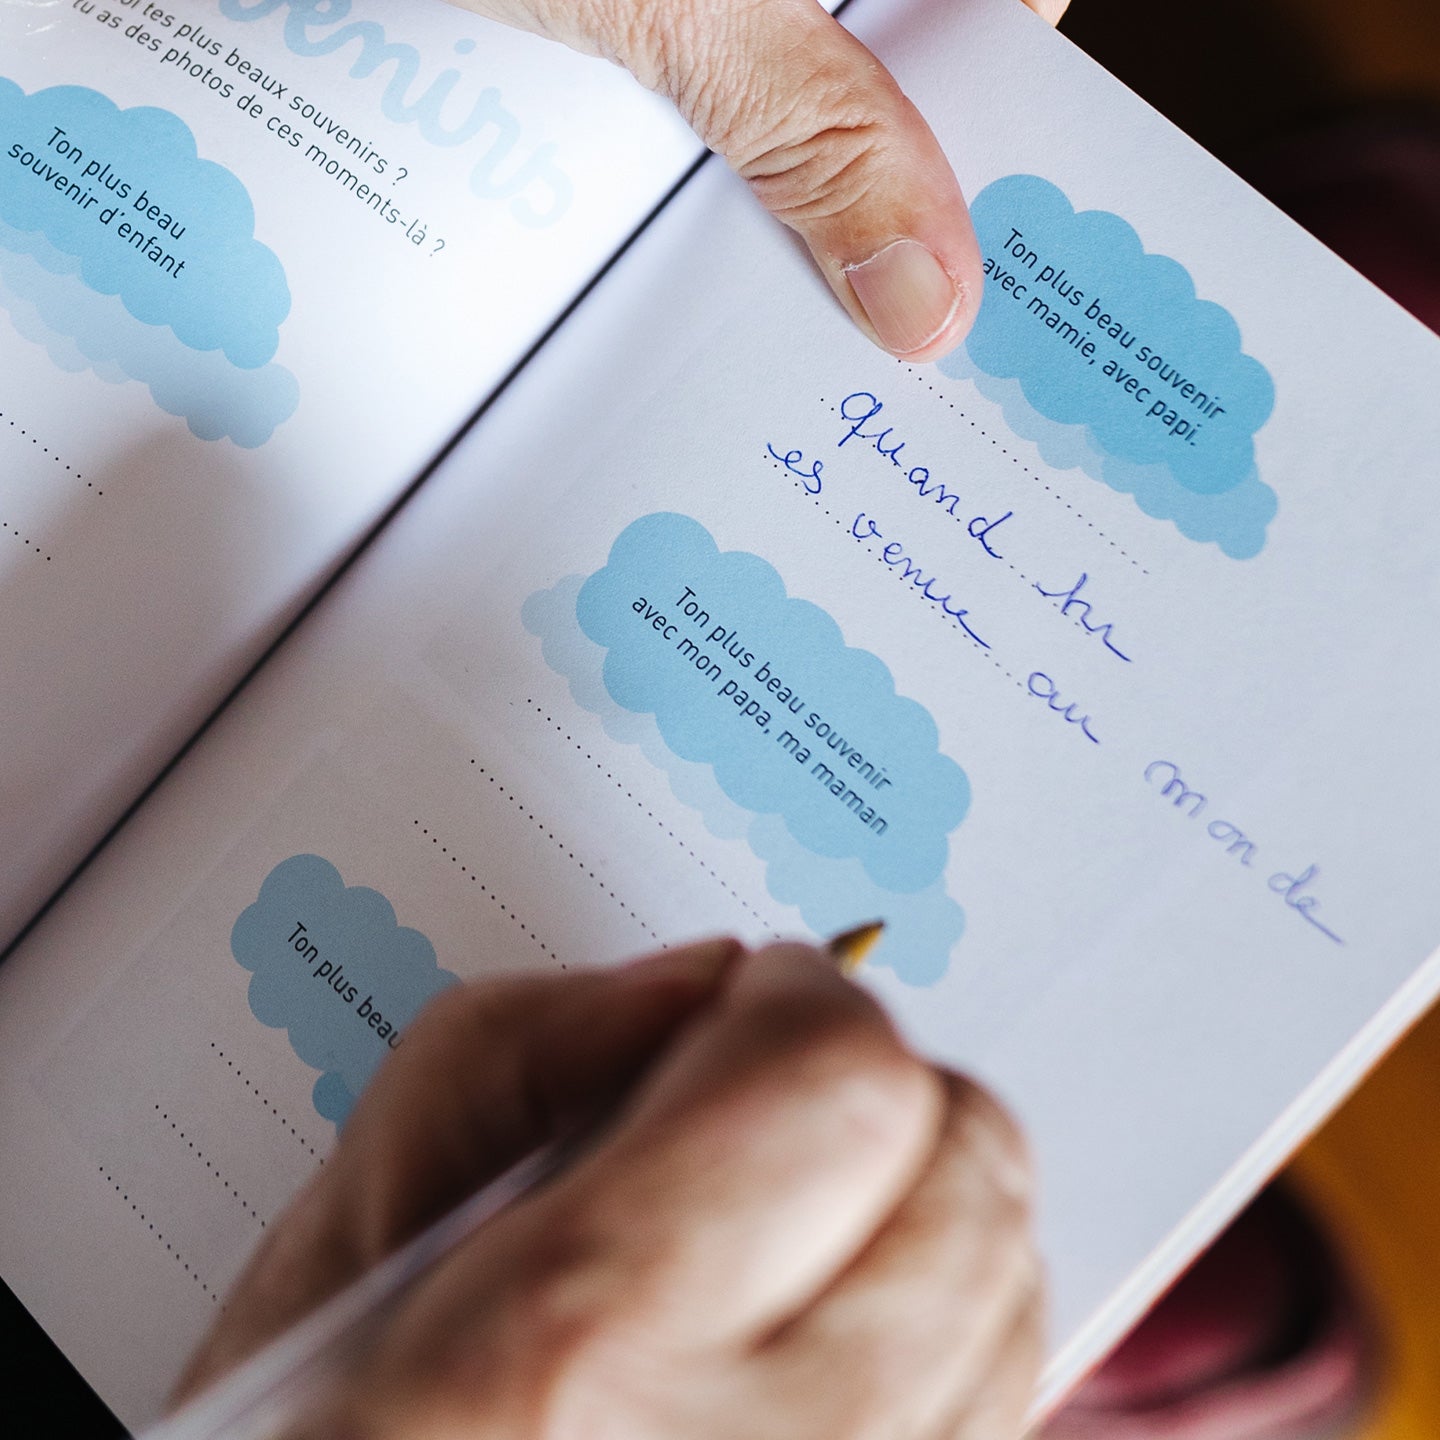 venirs
toi tes plus beaux souvenirs ?
tu as des photos de ces moments-là ?
Ton plus beau
souvenir d'enfant
Ton plus beau souvenir
avec mamie, avec papi.
quand tu
es venue au monde
Ton plus beau souvenir
avec mon papa, ma maman
Ton plus beau